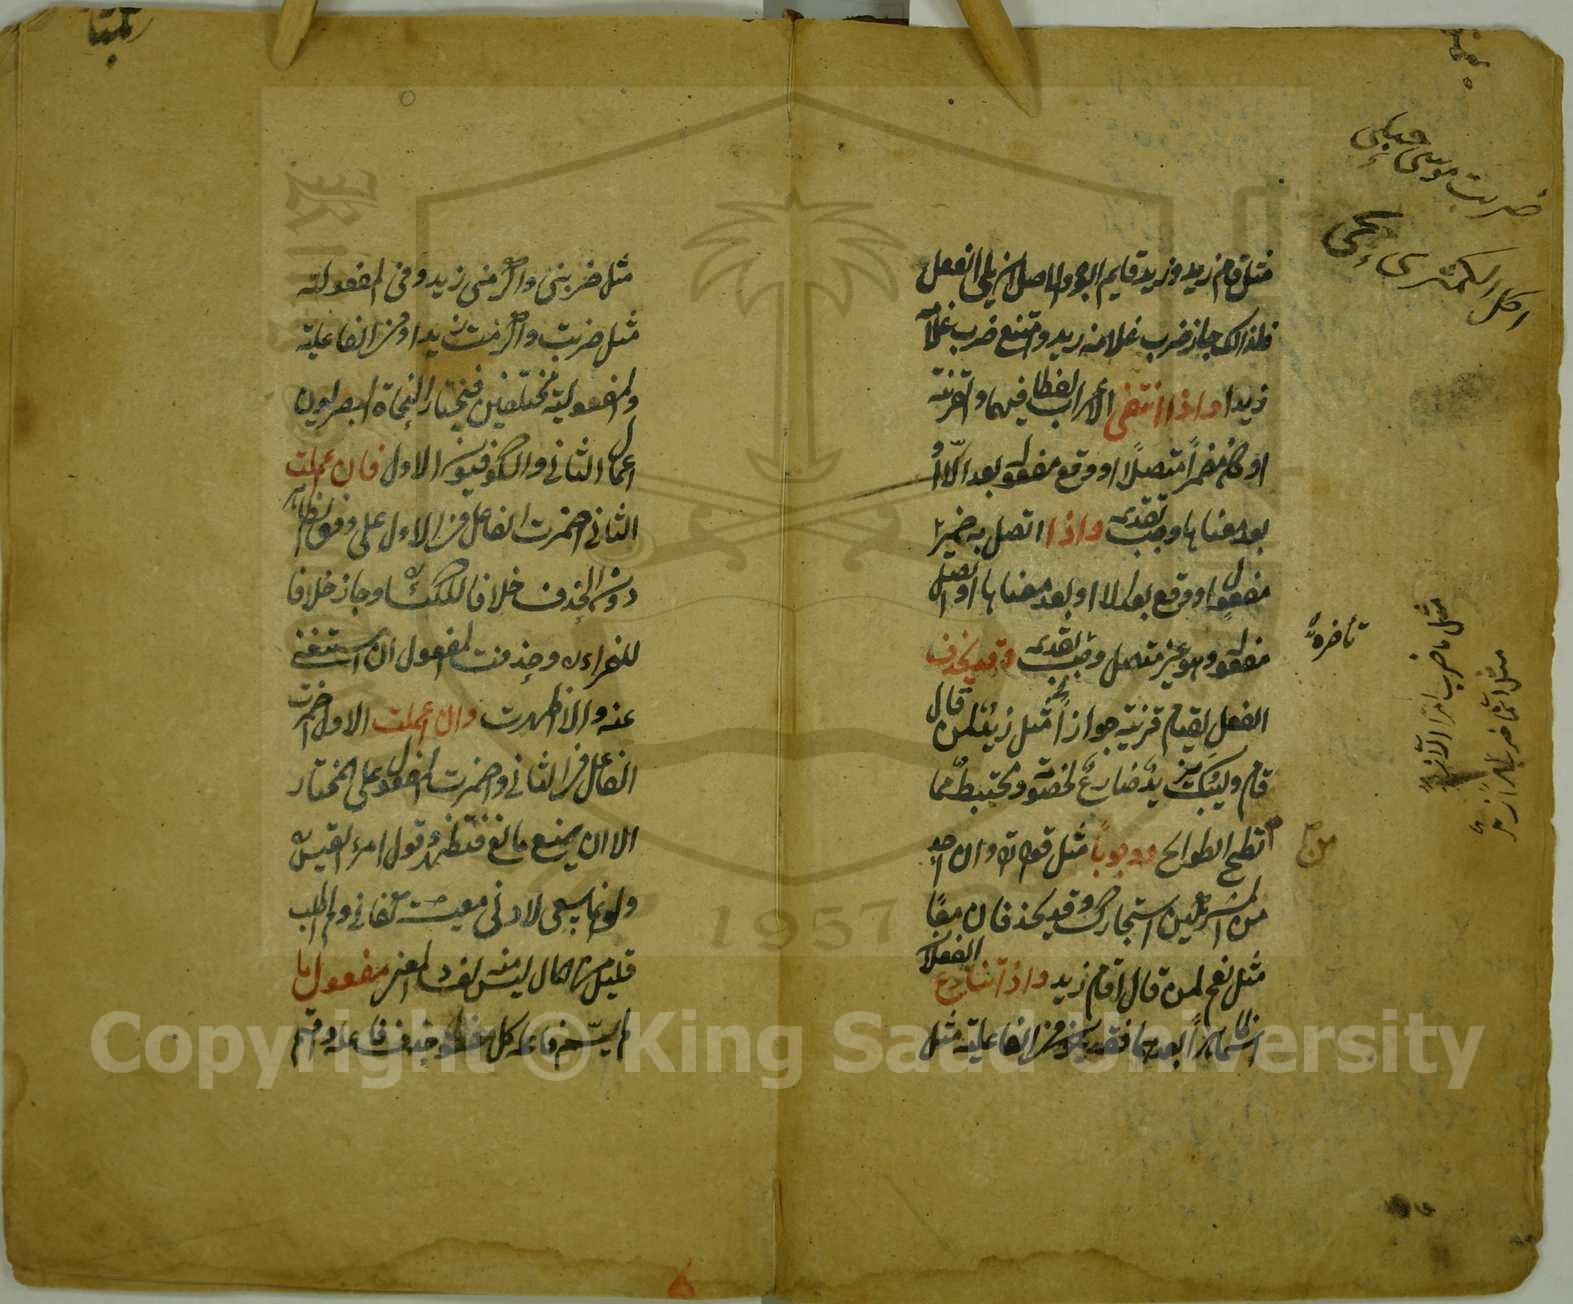 ضربت موسى حبلى
اكل الكمثرى يحيى
مثل قام زيد وزيد قايم ابوه والاصل ان يلي الفعل
فلذالك جاز ضرب غلامه زيد وامتنع ضرب غلامه
زيدا واذا انتفى الاعراب لفظا فيهما والقرينة
او كان مضمرا متصلا او وقع مفعوله بعد الا او
بعد معناها وجب تقديمه واذا اتصل به ضمير
مفعول او وقع بعد الا او بعد معناها او اتصل
مفعوله وهو غير متصل وجب تقديمه وقد يحذف
تأخيره
الفعل لقيام قرينة جوازا مثل زيد لمن قال
قام وليبك يزيد ضارع لخصومة ومختبط مما
تطيح الطوايح ووجوبا مثل قوله وان احد
من المشركين استجارك وقد يحذفان معا
مثل نعم لمن قال اقام زيد واذا تنازع الفعلان
ظاهرا بعدهما فقد يكون في الفاعلية مثل
مثل ما ضرب عمرا الا زيد
مثل انما ضرب عمرا زيد
مثل ضربني واكرمني زيد وفي المفعولية
مثل ضربت واكرمت زيدا وفي الفاعلية
والمفعولية مختلفين فيختار النحاة البصريون
اعمال الثاني والكوفيون الاول فان اعملت
الثاني اضمرت الفاعل في الاول على وفق الظاهر
دون الحذف خلافا للكسائي وجاز خلافا
للفراء وحذفت المفعول ان استغني
عنه والا اظهرت وان اعملت الاول اضمرت
الفاعل في الثاني واضمرت المفعول على المختار
الا ان يمنع مانع فتظهر وقول امرء القيس
ولو انما اسعى لادنى معيشة كفاني ولم اطلب
قليل من المال ليس منه لفساد المعنى مفعول ما
لم يسم فاعله كل مفعول حذف فاعله واقيم